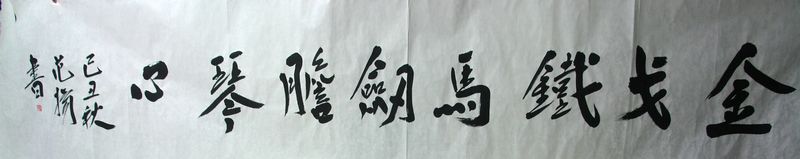 金戈鐵馬劍膽琴心
己丑秋
范
書